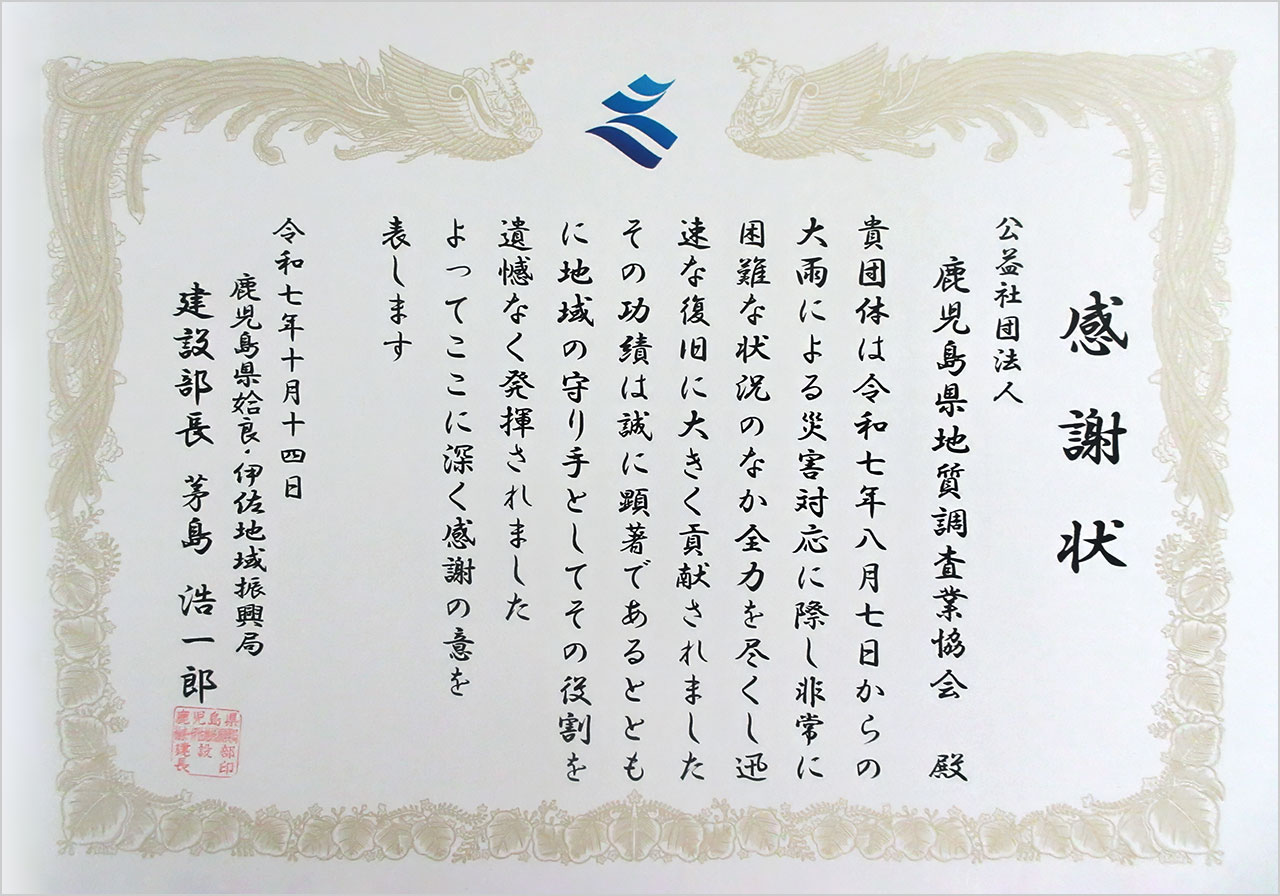 感謝状
公益社団法人
鹿児島県地質調査業協会 殿
貴団体は令和七年八月七日からの
大雨による災害対応に際し非常に
困難な状況のなか全力を尽くし迅
速な復旧に大きく貢献されました
その功績は誠に顕著であるととも
に地域の守り手としてその役割を
遺憾なく発揮されました
よってここに深く感謝の意を
表します
令和七年十月十四日
鹿児島県姶良・伊佐地域振興局
建設部長 茅島 浩一郎